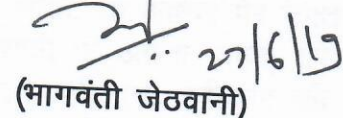 27/6/19
(भागवंती जेठवानी)